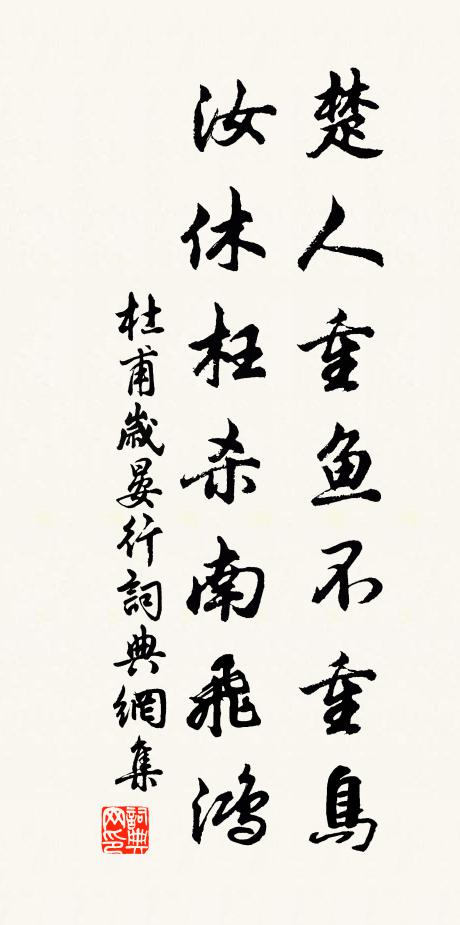 楚人重魚不重鳥
汝休枉杀南飛鴻
杜甫歲晏行詞典網集
詞典网印